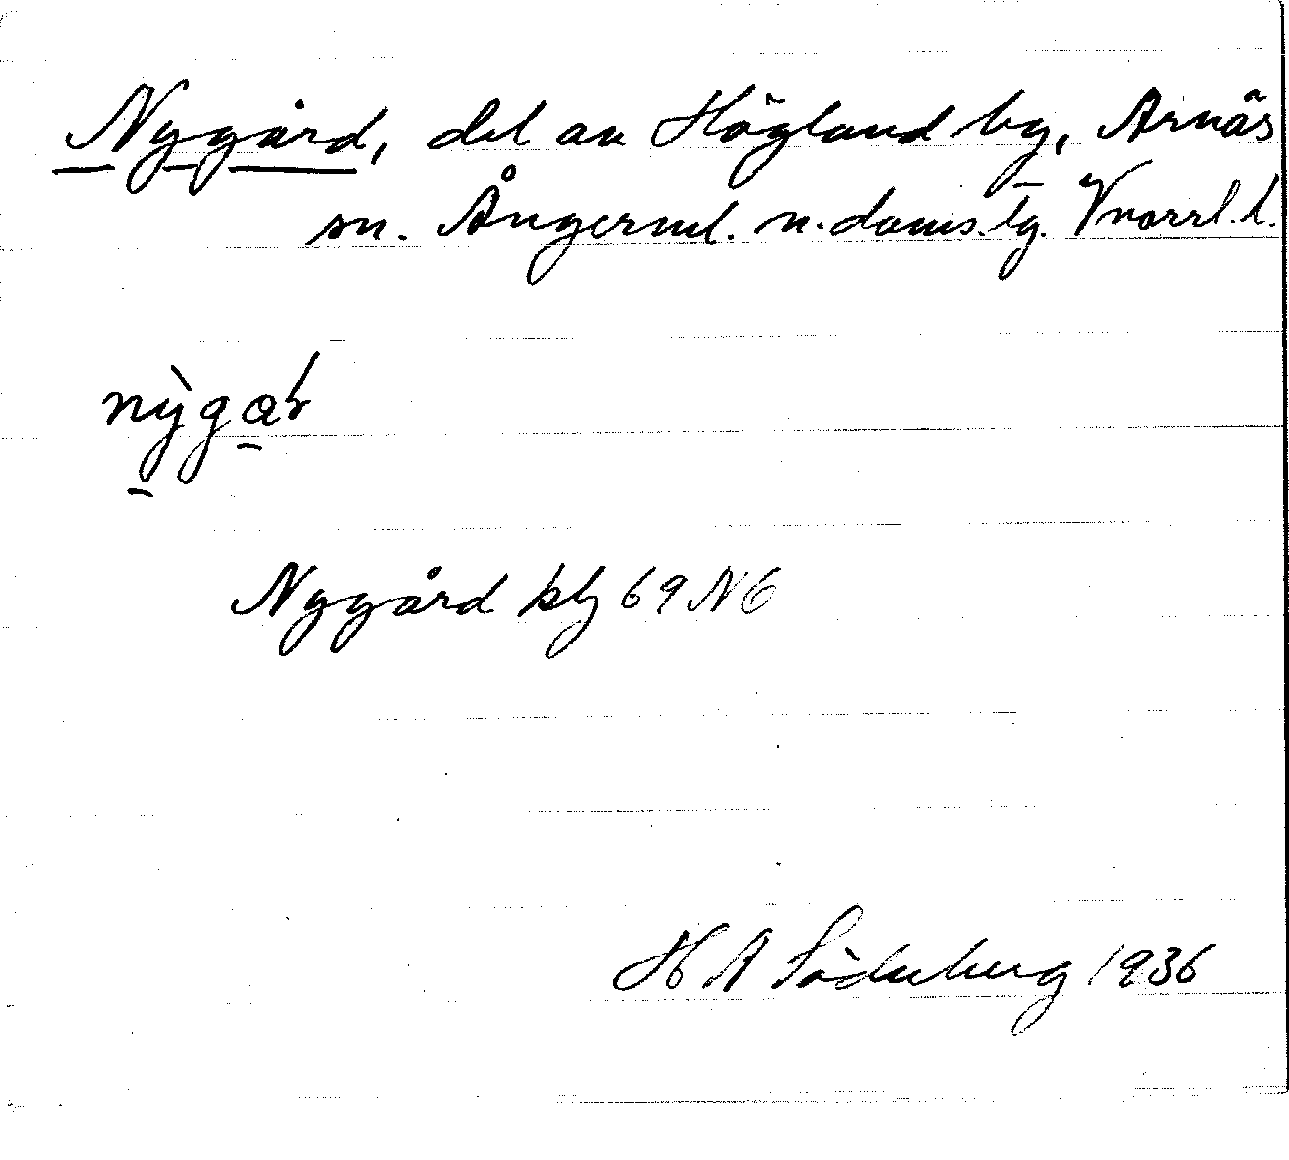 Nygård, del av Högland by, Arnäs
sn. Ångerml. n. doms.tg. Vnorrl. l.
nỳga̠r
Nygård kbl 69 N6
H A Söderberg 1936